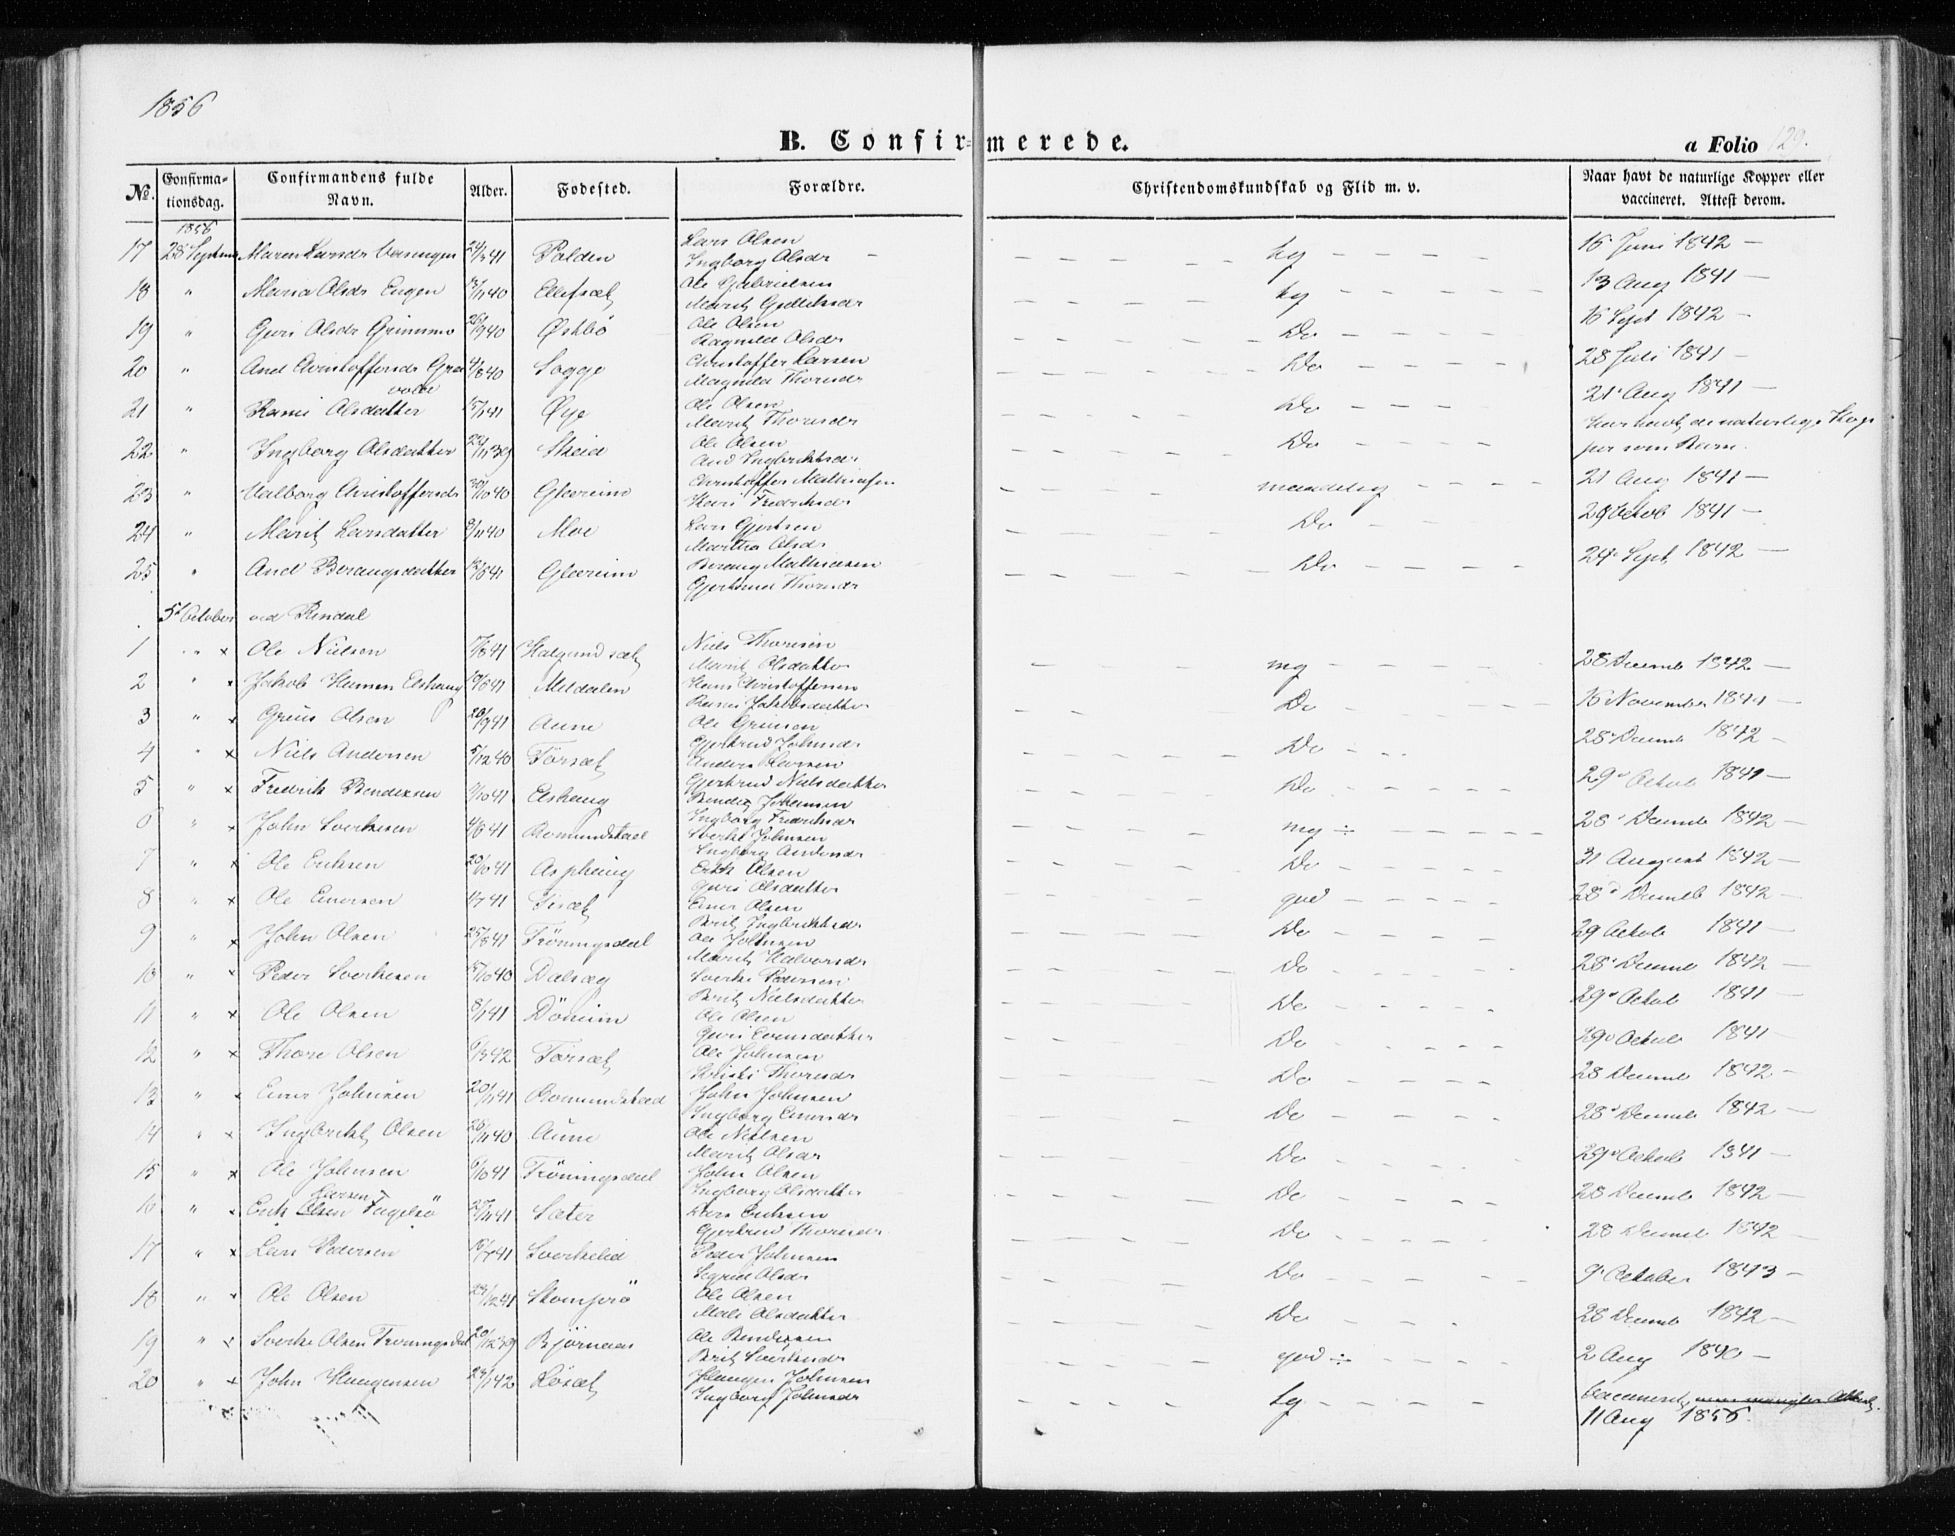 1856
B. Confirmerede.
a Folio 129.
No.
Confirmationsdag.
Confirmandens fulde Navn.
Alder.
Fødested.
Forældre.
Christendomskundskab og Flid m. v.
Naar havt de naturlige Kopper eller vaccineret. Attest derom.
1856
17 28 Septem Maren Larsdr 24/3 41 Polden Lars Olsen Ingborg Olsdr tg 16 Juni 1842 —
18 " Maria Olsdr Engen 40 Ellefsæt Ole Gabrielsen Marit tg 13 Aug 1841 —
19 " Guri Olsdr Grimsmo 40 Østbø Ole Olsen Ragnild Olsdr Do 16 Sept 1842 —
20 " Ane Christoffersdr 4/8 40 Sogge Christoffer Larsen Magnild Thoresdr Do 28 Juli 1841 —
21 " Karen Olsdatter 41 Øye Ole Olsen Marit Thoresdr Do 21 Aug 1841 —
22 " Ingborg Olsdatter 22/11 39 Skeid Ole Olsen And Ingbrektsdr Do har havt de naturlige Kopper som Barn.
23 " Valborg Christoffersdr 40 Gleereim Christoffer Mathiasen Kari Fredriksdr maadelig 21 Aug 1841 —
24 " Marit Larsdatter 9/11 40 Moe Lars Gjertsen Martha Olsdr Do 29 Octob 1841 —
25 " And Berangsdatter 41 Gleereim Berang Mathiasen Gjertrud Thoresdr Do 24 Sept 1842 —
5t October ved Rindal
1 " x Ole Nielsen 41 Halgundsæt Niels Thoresen Marit Olsdatter mg 28 Decemb 1842 —
2 " x Jakob Hansen Elshaug 41 Meldalen Hans Christoffersen Karen Jakobsdatter Do 16 November 1841 —
3 " x Greus Olsen 20/9 41 Aune Ole Greusen Gjertrud Johnsdr Do 28 Decemb 1842 —
4 " x Niels Andersen 5/12 40 Torsæt Anders Larsen Gjertrud Nielsdatter Do 29 Octob 1841 —
5 " x Fredrik Bendixsen 41 Elshaug Bendix Johansen Ingborg Fredriksdr Do 28 Decemb 1842 —
6 " x John Sverkesen 4/8 41 Romundstad Sverke Johnsen Ingborg Andersdr mg ÷ 31 August 1842 —
7 " x Ole Eriksen 20/10 41 Asphaug Erik Olsen Guri Olsdatter Do 28 Decemb 1842 —
8 " x Ole Einersen 41 Tisæt Einer Olsen Brit Ingbriktsdr god 29 Octob 1841 —
9 " x John Olsen 25/8 41 Tröningsdal Ole Johnsen Marit Halvorsdr Do 28 Decemb 1842 —
10 " x Peder Sverkesen 40 Dalsæg Sverke Pedersen Brit Nielsdatter Do 29 Octob 1841 —
11 " x Ole Olsen 8/1 41 Dönim Ole Olsen Guri Evensdatter Do 29 Octob 1841 —
12 " x Thore Olsen 6/3 42 Torsæt Ole Johnsen Kristi Thoresdr Do 28 Decemb 1842 —
13 " x Einer Johnsen 20/11 41 Romundstad John Johnsen Ingborg Einersdr Do 28 Decemb 1842 —
14 " x Ingbrikt Olsen 40 Aune Ole Nielsen Marit Olsdr Do 29 Octob 1841 —
15 " x Ole Johnsen 6/10 41 Tröningsdal John Olsen Ingborg Olsdatter Do 28 Decemb 1842 —
16 " x Erik Olsen Larsen Fugelsö 41 Sæter Lars Eriksen Gjertrud Thoresdr Do 28 Decemb 1842 —
17 " x Lars Pedersen 41 Sverkelid Peder Johnsen Sigrid Olsdr Do 9 October 1843 —
18 " x Ole Olsen 41 Ole Olsen Mali Olsdatter Do 28 Decemb 1842 —
19 " x Sverke Olsen Troningsdal 20/12 39 Björnaas Ole Bendixsen Brit Sverkesdr god ÷ 2 Aug 1840 —
20 " x John Haugensen 24/1 42 Løsæt Haugen Johnsen Ingborg Johnsdr tg Vaccineret, men mangler Attest. 11 Aug 1856.